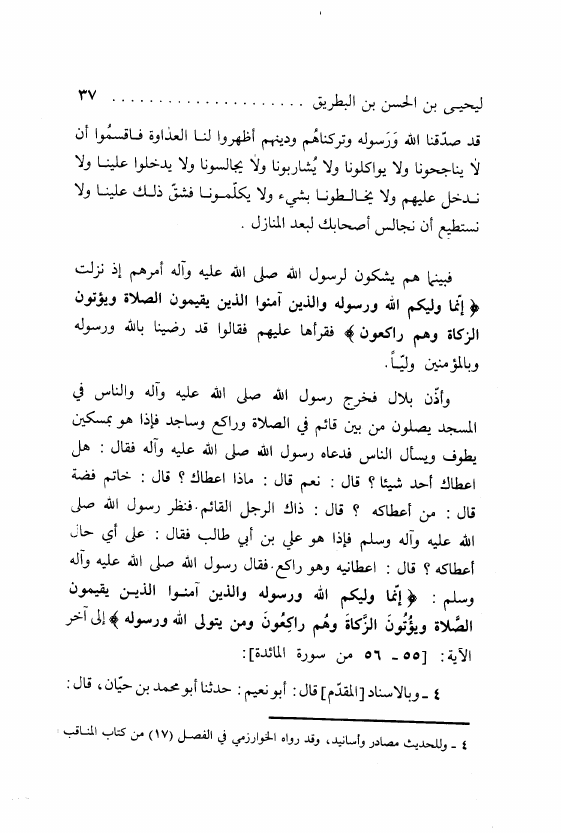 ليحيـى بن الحسن بن البطريق . . . . . . . . . . . . . . . . . . . . . ٣٧
قد صدّقنا الله وَرَسوله وتركناهُم ودينهم أظهروا لنـا العذاوة فـاقسمُوا أن
لا يناجحونا ولا يواكلونا ولا يُشاربونا ولا يجالسونا ولا يدخلوا علينـا ولا
نـدخل عليهم ولا يخـالـطونـا بشيء ولا يكلّمـونـا فشقّ ذلـك علينـا ولا
نستطيع أن نجالس أصحابك لبعد المنازل .
فبينما هم يشكون لرسول الله صلى الله عليه وآله أمرهم إذ نزلت
﴿ إنّما وليكم الله ورسوله والذين آمنوا الذين يقيمون الصلاة ويؤتون
الزكاة وهم راكعون ﴾ فقرأها عليهم فقالوا قد رضينا بالله ورسوله
وبالمؤمنين وليّـاً.
وأذّن بلال فخرج رسول الله صلى الله عليه وآله والناس في
المسجد يصلون من بين قائم في الصلاة وراكع وساجد فإذا هو بمسكين
يطوف ويسأل الناس فدعاه رسول الله صلى الله عليه وآله فقال : هل
اعطاك أحد شيئا ؟ قال : نعم قال : ماذا اعطاك ؟ قال : خاتم فضة
قال : من أعطاكه ؟ قال : ذاك الرجل القائم.فنظر رسول الله صلى
الله عليه وآله وسلم فإذا هو علي بن أبي طالب فقال : على أي حال
أعطاكه ؟ قال : اعطانيه وهو راكع.فقال رسول الله صلى الله عليه وآله
وسلم : ﴿ إنّما وليكم الله ورسوله والذين آمنـوا الذيـن يقيمون
الصَّلاة ويؤْتُونَ الزَّكاةَ وهُم راكِعُونَ ومن يتولى الله ورسوله ﴾ إلى آخر
الآية : [٥٥ ـ ٥٦ من سورة المائدة]:
٤ ـ وبالاسناد [المقدّم] قال : أبو نعيم : حدثنا أبو محمد بن حيّان، قال :
٤ ـ وللحديث مصادر وأسانيد، وقد رواه الخوارزمي في الفصل (١٧) من كتاب المناقب